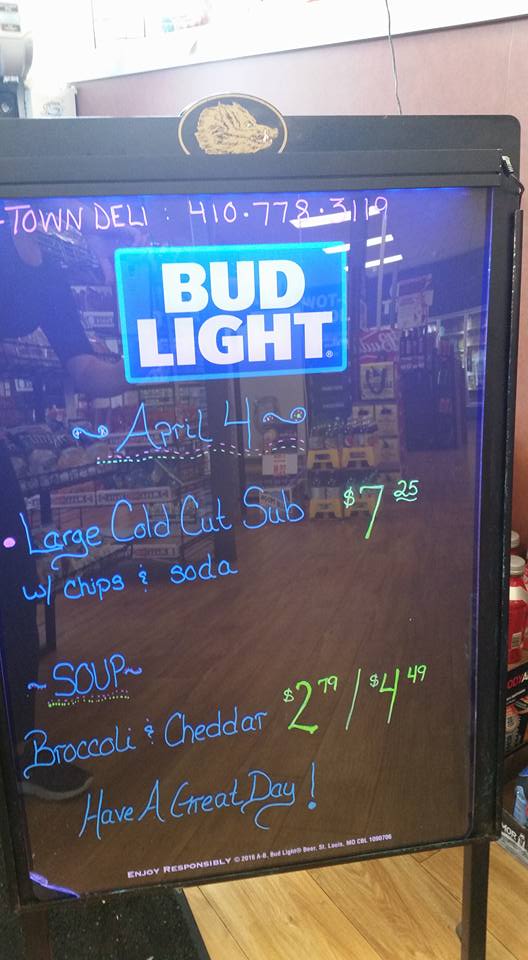 -TOWN DELI : 410·778·3119
BUD
LIGHT®
April 4
• Large Cold Cut Sub $7 25
w/ chips & soda
~SOUP~
Broccoli & Cheddar $2 79 / $4 49
Have A Great Day!
ENJOY RESPONSIBLY © 2016 A-B, Bud Light® Beer, St. Louis, MO CBL 1090706